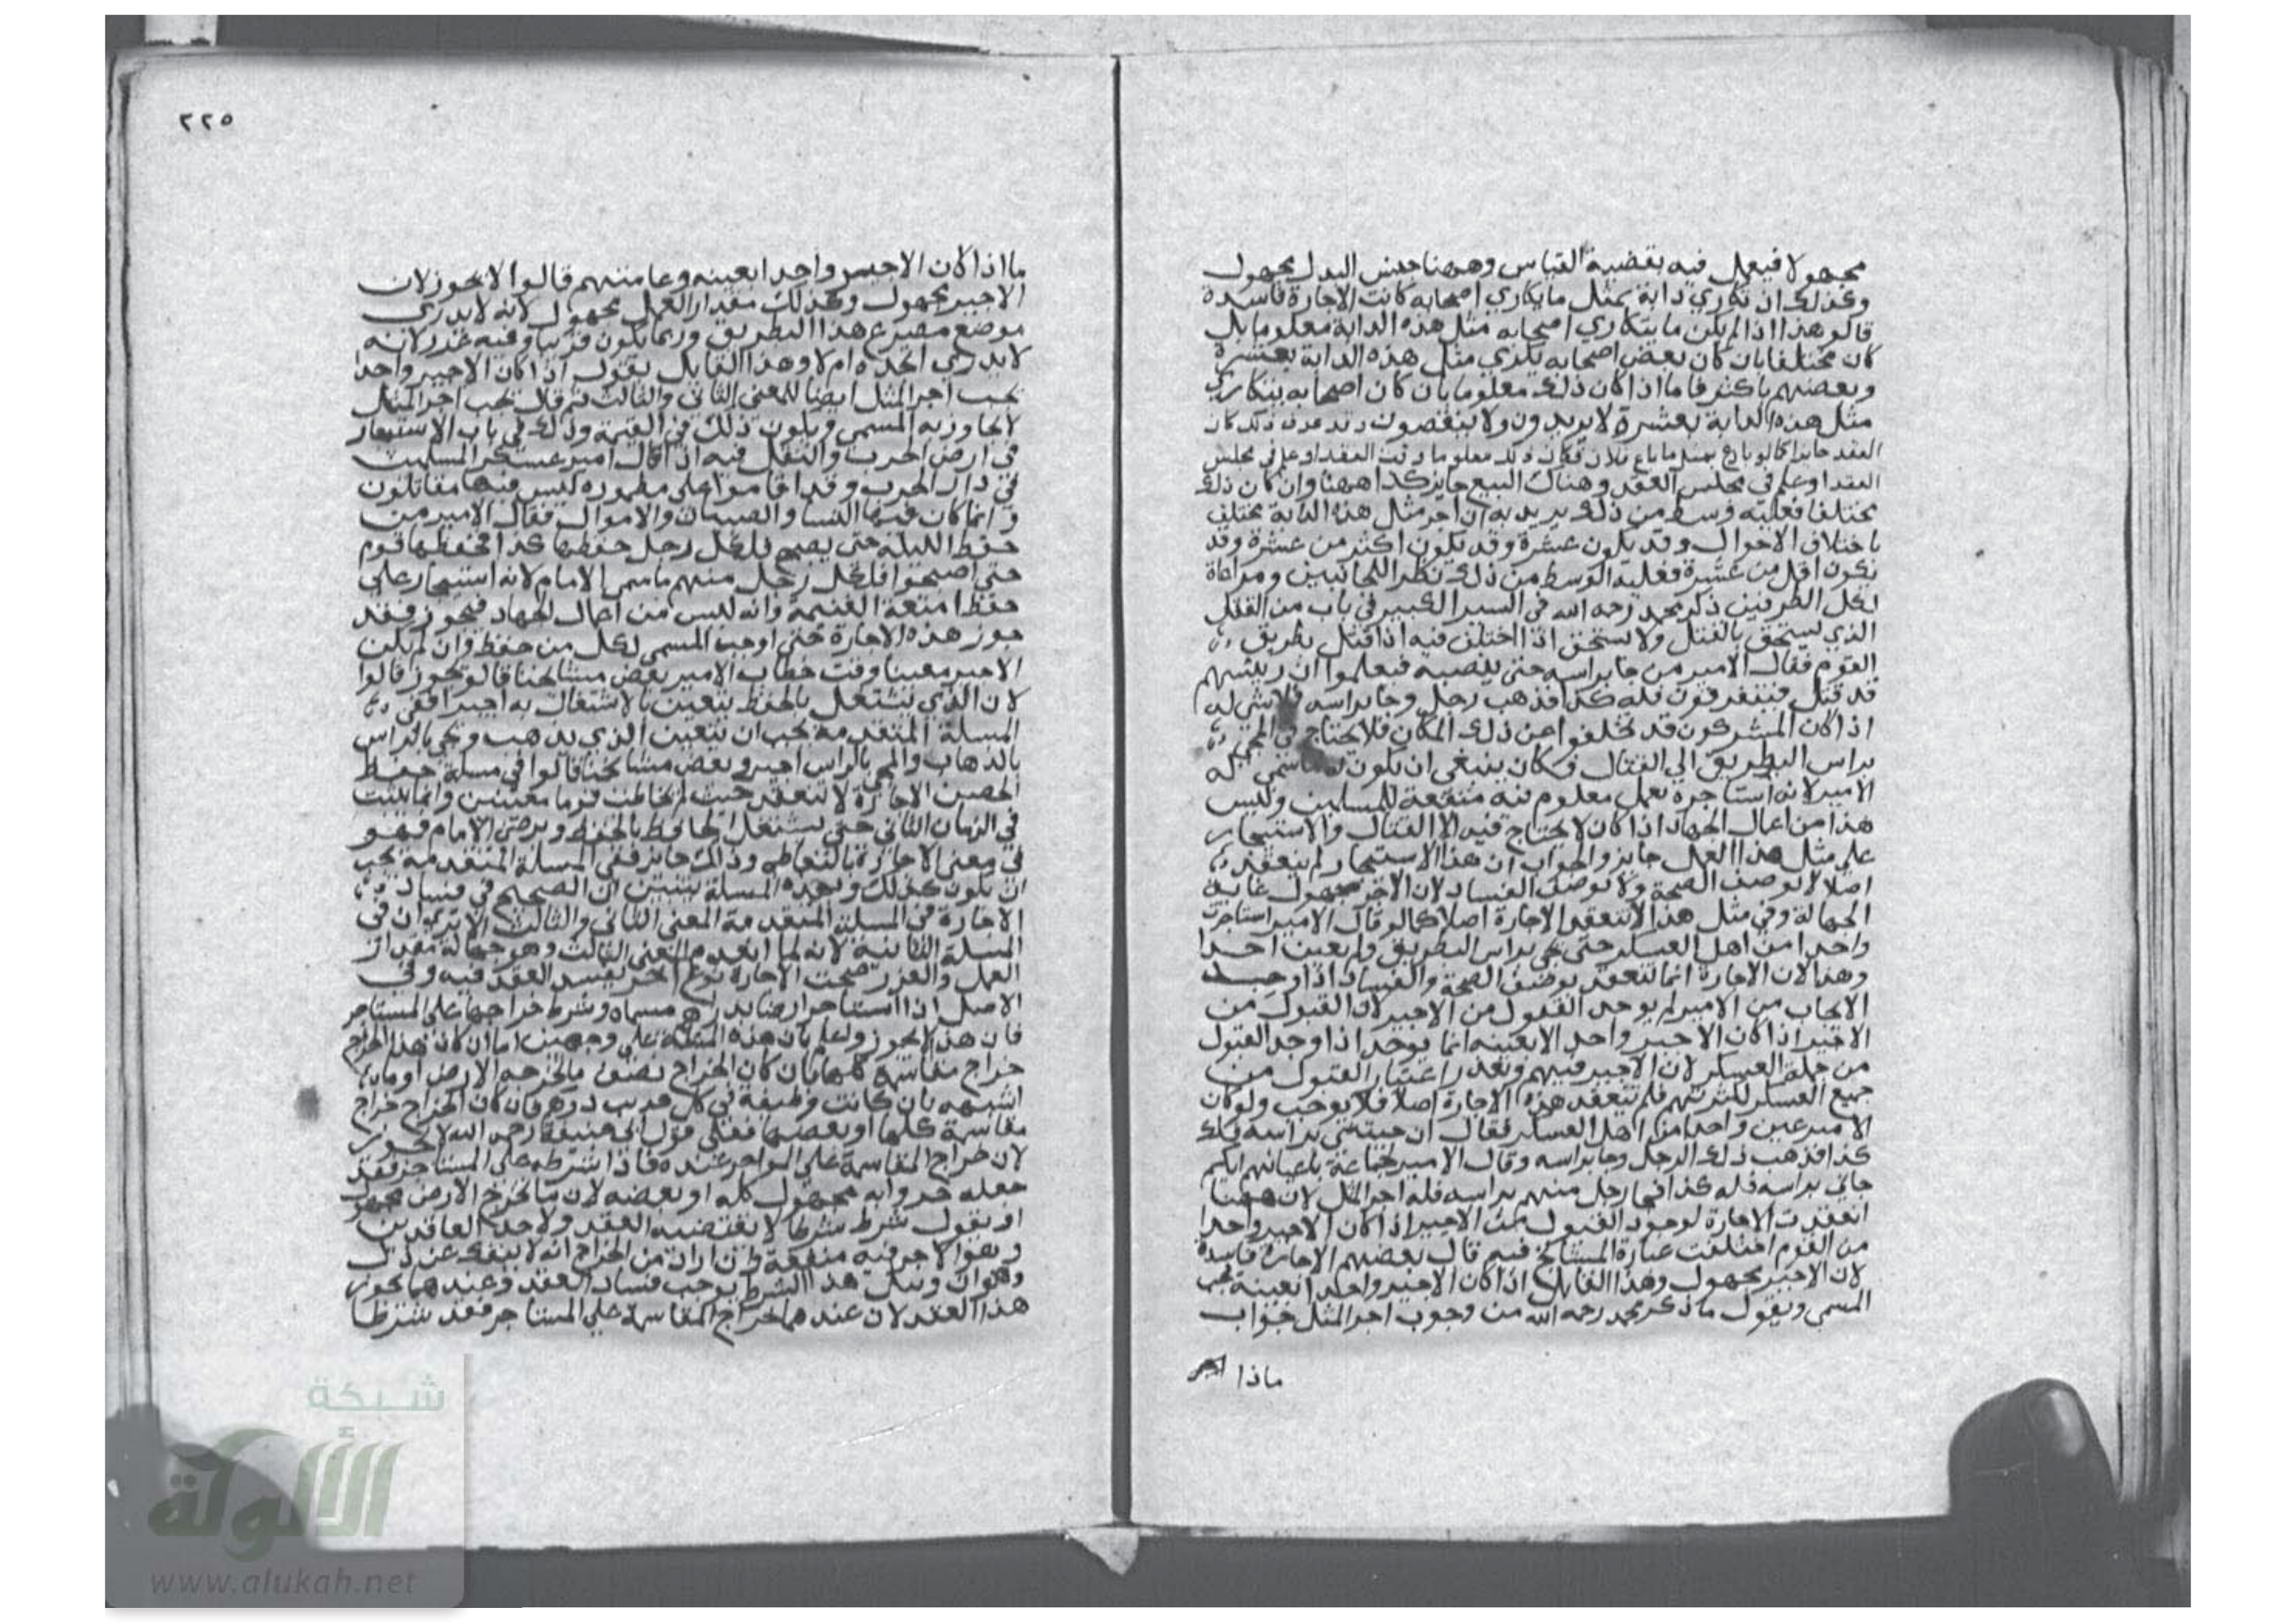 مجهولا فيعمل فيه بقضية القياس وههنا جنس البدل مجهول
وكذلك ان تكاري دابة بمثل ما يكاري اصحابه كانت الاجارة فاسدة
قالو هذا اذا لم يكن ما يتكاري اصحابه مثل هذه الدابة معلوما بل
كان مختلفا بان كان بعض اصحابه يكري مثل هذه الدابة بعشرة
وبعضهم باكثر فاما اذا كان ذلك معلوما بان كان اصحابه يتكاري
مثل هذه الدابة بعشرة لا يزيدون ولا ينقصون وقد عرف ذلك كان
العقد جايزا كما لو باع بمثل ما باع فلان فكان ذلك معلوما وقت العقد او علم في مجلس
العقد او علم في مجلس العقد وهناك البيع جايز كذا ههنا وان كان ذلك
مختلفا فعليه وسط من ذلك يريد به ان اجر مثل هذه الدابة مختلف
باختلاف الاحوال وقد يكون عشرة وقد يكون اكثر من عشرة وقد
يكون اقل من عشرة فعليه الوسط من ذلك نظرا للجانبين ومراعاة
لكل الطرفين ذكر محمد رحمه الله في السير الكبير في باب من القتل
الذي يستحق بالقتل ولا يستحق اذا اختلف فيه اذا قتل بطريق
القوم فقال الامير من جا براسه حتى ينصبه فيعلموا ان رئيسهم
قد قتل فيتفرقون فله كذا فذهب رجل وجا براسه فلا شي له
اذا كان المشركون قد تخلفوا عن ذلك المكان فلا يحتاج في المجي
براس البطريق الي القتال وكان ينبغي ان يكون له ما سمي له
الامير لانه استاجره بعمل معلوم فيه منفعة للمسلمين وليس
هذا من اعمال الجهاد اذا كان لا يحتاج فيه الا القتال والاستيجار
علي مثل هذا العمل جايز والجواب ان هذا الاستيجار لم ينعقد
اصلا لا بوصف الصحة ولا بوصف الفساد لان الاجير مجهول غاية
الجهالة وفي مثل هذا لا تنعقد الاجارة اصلا كما لو قال الامير استاجرت
واحدا من اهل العسكر حتى يجي براس البطريق ولم يعين احدا
وهذا لان الاجارة انما تنعقد بوصف الصحة والفساد اذا وجد
الايجاب من الامير لم يوجد القبول من الاجير لان القبول من
الاجير اذا كان الاجير واحدا لا بعينه انما يوجد اذا وجد القبول
من جملة العسكر لان الاجير فيهم وتعذر اعتبار القبول من
جميع العسكر لكثرتهم فلم تنعقد هذه الاجارة اصلا فلا يوجب ولو كان
الامير عين واحدا من اهل العسكر فقال ان جيتني براسه فلك
كذا فذهب ذلك الرجل وجا براسه وقال الامير لجماعة باعيانهم ايكم
جاني براسه فله كذا فجا رجل منهم براسه فله اجر المثل لان ههنا
انعقدت الاجارة لوجود القبول من الاجير اذا كان الاجير واحدا
من القوم اختلفت عبارة المشايخ فيه قال بعضهم الاجارة فاسدة
لان الاجير مجهول وهذا القايل اذا كان الاجير واحدا بعينه يجب
المسمي ويقول ما ذكر محمد رحمه الله من وجوب اجر المثل جواب
ماذا
٢٢٥
ما اذا كان الاجير واحدا بعينه وعامتهم قالوا لا يجوز لان
الاجير مجهول وكذلك مقدار العمل مجهول لانه لا يدري
موضع مصرع هذا البطريق وربما يكون قريبا وفيه غرر لانه
لا يدري ايجده ام لا وهذا القايل يقول اذا كان الاجير واحدا
يجب اجر المثل ايضا للمعنى الثاني والثالث ثم قال يجب اجر المثل
لا يجاوز به المسمى ويكون ذلك من الغنيمة وذكر في باب الاستيجار
في ارض الحرب والنفل فيه اذا قال امير عسكر المسلمين
في دار الحرب وقد اقاموا على مطمورة ليس فيها مقاتلون
وانما كان فيها النسا والصبيان والاموال فقال الامير من
حفظ الليلة حتى يصبح فلكل رجل حفظها كذا فحفظها قوم
حتى اصبحوا فلكل رجل منهم ما سمى الامام لانه استيجار على
حفظ امتعة الغنيمة وانه ليس من اعمال الجهاد فيجوز فقد
جوز هذه الاجارة حتى اوجب المسمى لكل من حفظ وان لم يكن
الاجير معينا وقت خطاب الامير بعض مشايخنا قالو تجوز قالوا
لان الذي يشتغل بالحفظ يتعين بالاشتغال به اجيرا ففي
المسلة المتقدمة يجب ان يتعين الذي يذهب ويجي بالراس
بالذهاب والمجي بالراس اجيرا وبعض مشايخنا قالوا في مسلة حفظ
الحصن الاجارة لا تنعقد حيث لم يخاطب قوما معينين وانما يثبت
في الزمان الثاني حتى يشتغل الحافظ بالحفظ ويرضى الامام فهو
في معنى الاجارة بالتعاطي وذلك جايز ففي المسلة المتقدمة يجب
ان يكون كذلك وبهذه المسلة يتبين ان الصحيح في فساد
الاجارة في المسلة المتقدمة المعنى الثاني والثالث الا يرى ان في
المسلة الثانية لانه لما انعدم المعنى الثالث وهو جهالة مقدار
العمل والغرر صحت الاجارة نوع اخر يفسد العقد فيه وفي
الاصل اذا استاجر ارضا بدراهم مسماه وشرط خراجها على المستاجر
فان هذا لا يجوز واعلم بان هذه المسلة على وجهين اما ان كان هذا الخراج
خراج مقاسمة كلها بان كان الخراج نصف ما يخرجه الارض او ما
اشبهه بان كانت وظيفة في كل جريب درهم فان كان الخراج خراج
مقاسمة كلها او بعضها فعلى قول ابي حنيفة رحمه الله لا يجوز
لان خراج المقاسمة على المواجر عنده فاذا اشترطه على المستاجر فقد
جعله جزوا به مجهول كله او بعضه لان ما يخرج الارض مجهول
او يقول شرط شرطا لا يقتضيه العقد ولاحد العاقدين
وهو الاجر فيه منفعة
هذا الشرط يوجب فساد العقد وعندهما يجوز
هذا العقد لان عندهما خراج المقاسمة علي المستاجر فقد شرطا
شبكة
الألوكة
www.alukah.net